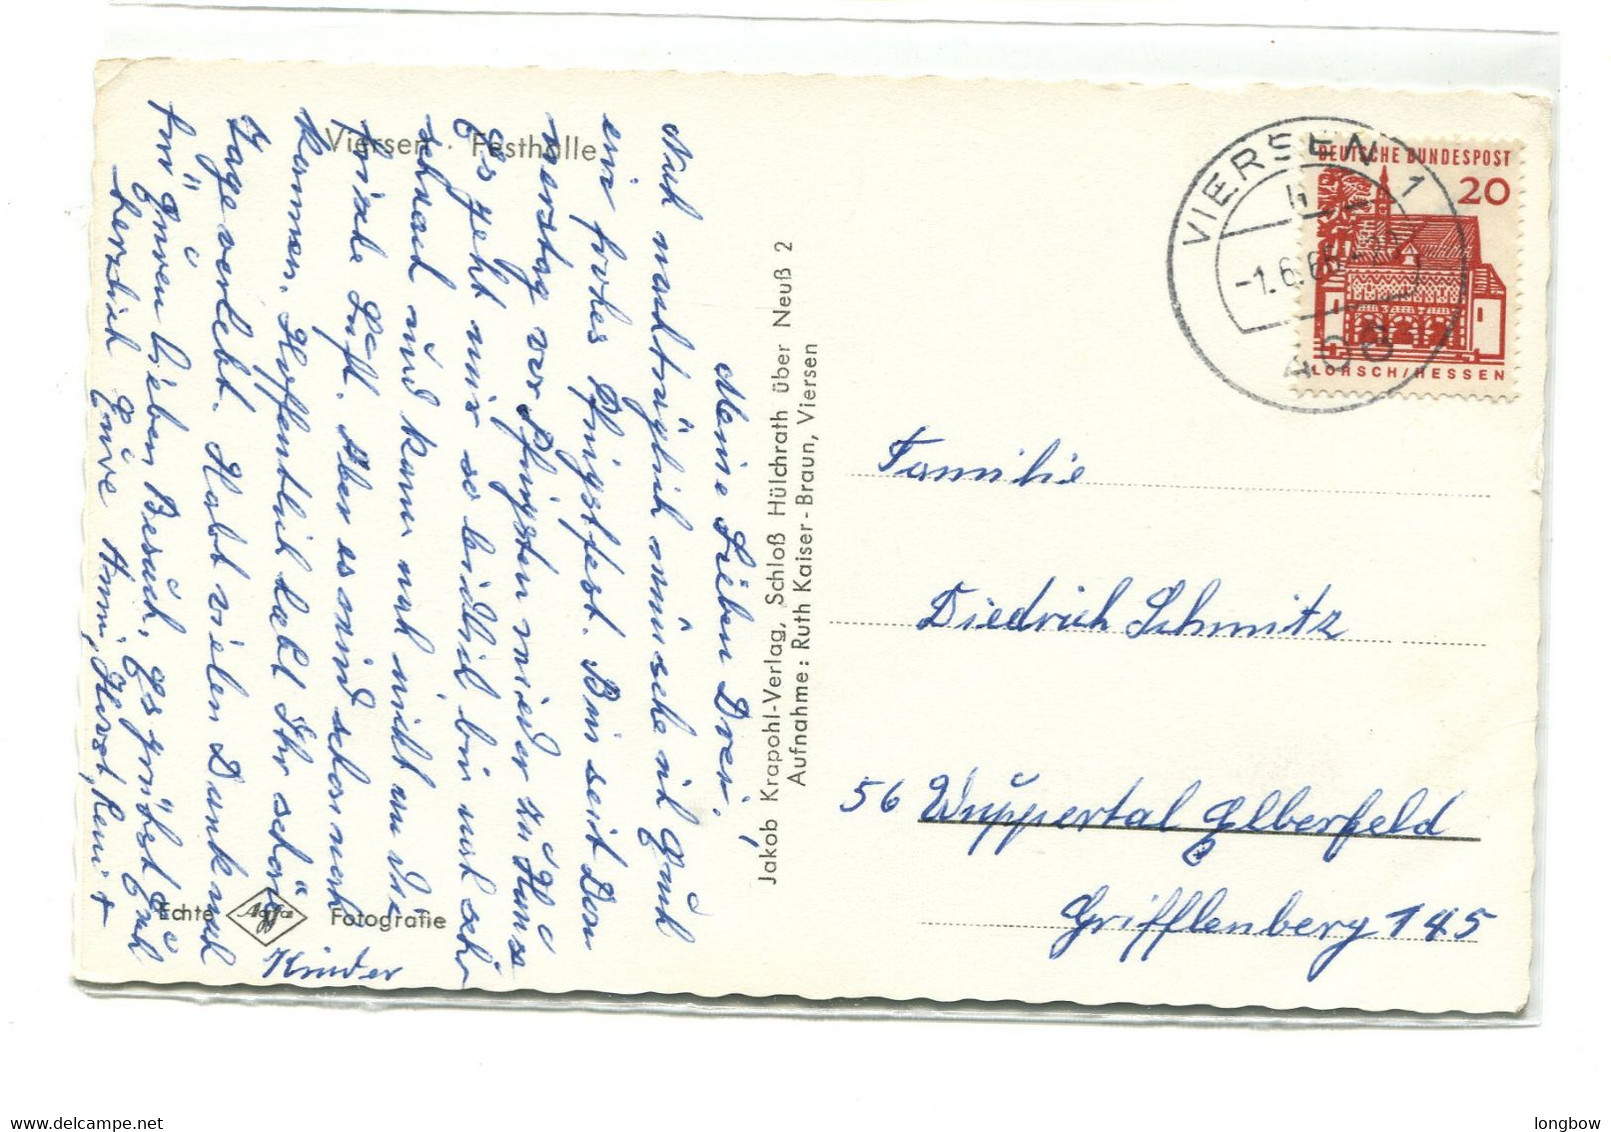 Viersen · Festhalle
Meine Lieben Drei!
Nach nachträglich wünsche ich Euch
ein frohes Pfingstfest. Bin seit Don
nerstag vor Pfingsten wieder zu Haus
Es geht mir so leidlich bin noch sehr
schwach und kann noch nicht an die
frische Luft. Aber es wird schon noch
kommen. Hoffentlich habt Ihr schöne
Tage verlebt. Habt vielen Dank auch
für Euren lieben Besuch. Es grüßt Euch
herzlich Eure Anni, Horst,
Kinder
Echte Agfa Fotografie
Jakob Krapohl-Verlag, Schloß Hülchrath über Neuß 2
Aufnahme: Ruth Kaiser-Braun, Viersen
VIERSEN 1
-1.6.
406
DEUTSCHE BUNDESPOST
20
LORSCH/HESSEN
Familie
Diedrich Schmitz
56 Wuppertal Elberfeld
Grifflenberg 145
longbow
delcampe.net